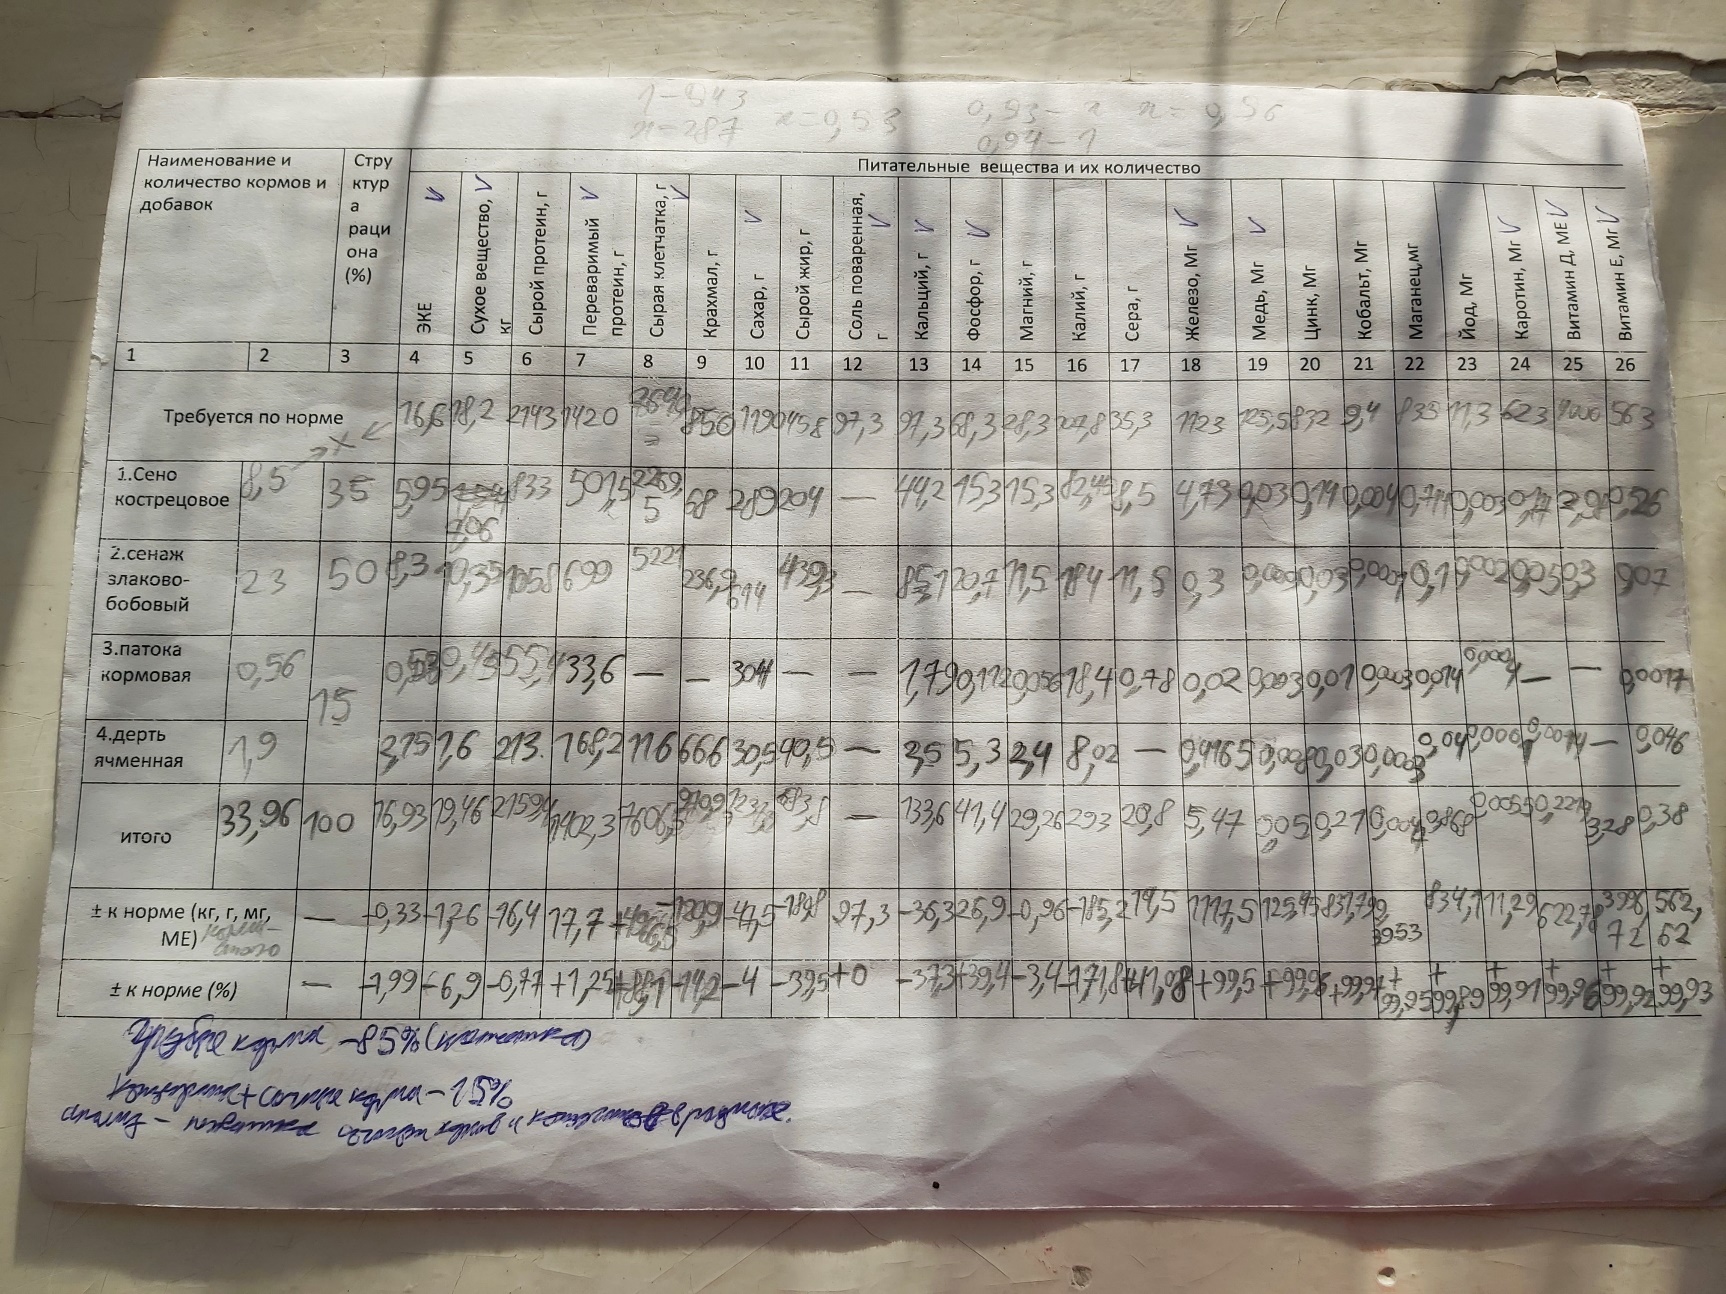 1-943
x-287 x=0,53 0,93-x x=0,56
0,94-1
Наименование и количество кормов и добавок Структура рациона (%) Питательные вещества и их количество
ЭКЕ Сухое вещество, кг Сырой протеин, г Переваримый протеин, г Сырая клетчатка, г Крахмал, г Сахар, г Сырой жир, г Соль поваренная, г Кальций, г Фосфор, г Магний, г Калий, г Сера, г Железо, Мг Медь, Мг Цинк, Мг Кобальт, Мг Маганец,мг Йод, Мг Каротин, Мг Витамин Д, МЕ Витамин Е, Мг
1 2 3 4 5 6 7 8 9 10 11 12 13 14 15 16 17 18 19 20 21 22 23 24 25 26
Требуется по норме 16,6 18,2 2143 1420 850 1190 458 97,3 97,3 68,3 28,3 107,8 35,3 1123 125,5 832 9,4 835 11,3 623 4000 563
1.Сено кострецовое 8,5 35 5,95 7,06 833 501,5 2269,5 68 289 204 — 44,2 15,3 15,3 82,45 8,5 4,73 0,03 0,14 0,004 0,711 0,003 0,17 2,98 0,26
2.сенаж злаково-бобовый 23 50 8,3 10,35 1058 699 5221 236,9 614 439,3 — 85,1 20,7 11,5 184 11,5 0,3 0,009 0,03 0,0001 0,1 0,002 0,05 0,3 0,07
3.патока кормовая 0,56 15 0,53 0,45 55,4 33,6 — — 304 — — 1,79 0,112 0,056 18,4 0,78 0,02 0,003 0,01 0,0003 0,014 0,0004 — — 0,0017
4.дерть ячменная 1,9 2,15 1,6 213 168,2 116 666 30,5 40,5 — 3,5 5,3 2,4 8,02 — 0,4165 0,008 0,03 0,0003 0,04 0,0001 0,0014 — 0,046
итого 33,96 100 16,93 19,46 2159,4 1402,3 7606,5 970,9 683,8 — 133,6 41,4 29,26 293 20,8 5,47 0,05 0,21 0,0047 0,868 0,0055 0,2214 3,28 0,38
± к норме (кг, г, мг, МЕ) — -0,33 -1,26 -16,4 17,7 -120,9 -47,5 97,3 -36,3 26,9 -0,96 -185,2 14,5 1117,5 125,45 831,79 9,3953 834,1 11,29 622,78 562,62
± к норме (%) — -1,99 -6,9 -0,77 +1,25 -14,2 -4 -39,5 +0 -37,3 +39,4 -3,4 -171,8 +41,08 +99,5 +99,96 +99,97 +99,95 +99,89 +99,91 +99,96 +99,92 +99,93
Грубые корма -85% (клетчатка)
+ сочные корма -15%